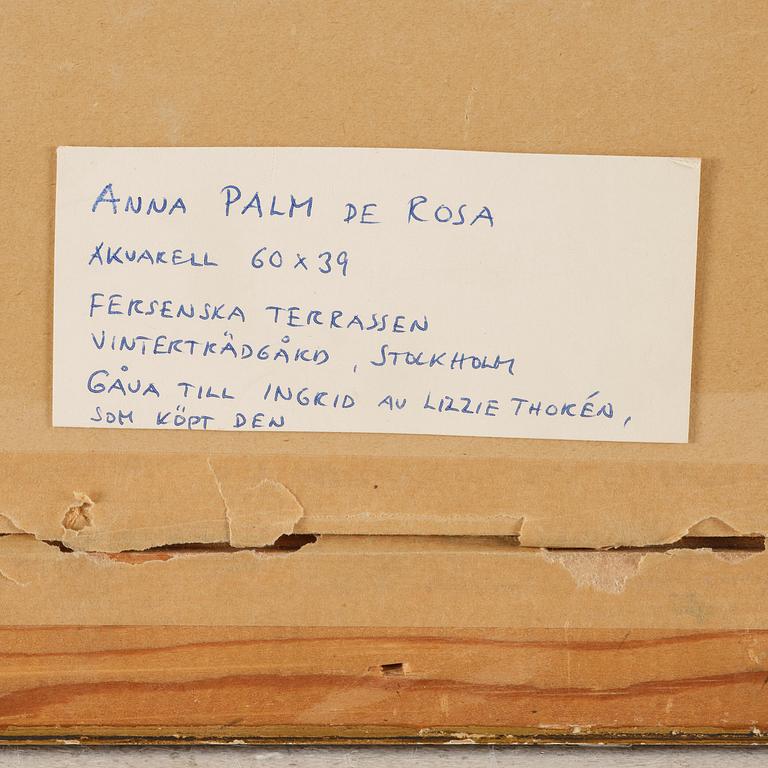 ANNA PALM DE ROSA
AKVARELL 60 x 39
FERSENSKA TERRASSEN
VINTERTRÄDGÅRD, STOCKHOLM
GÅVA TILL INGRID AV LIZZIE THORÉN,
SOM KÖPT DEN